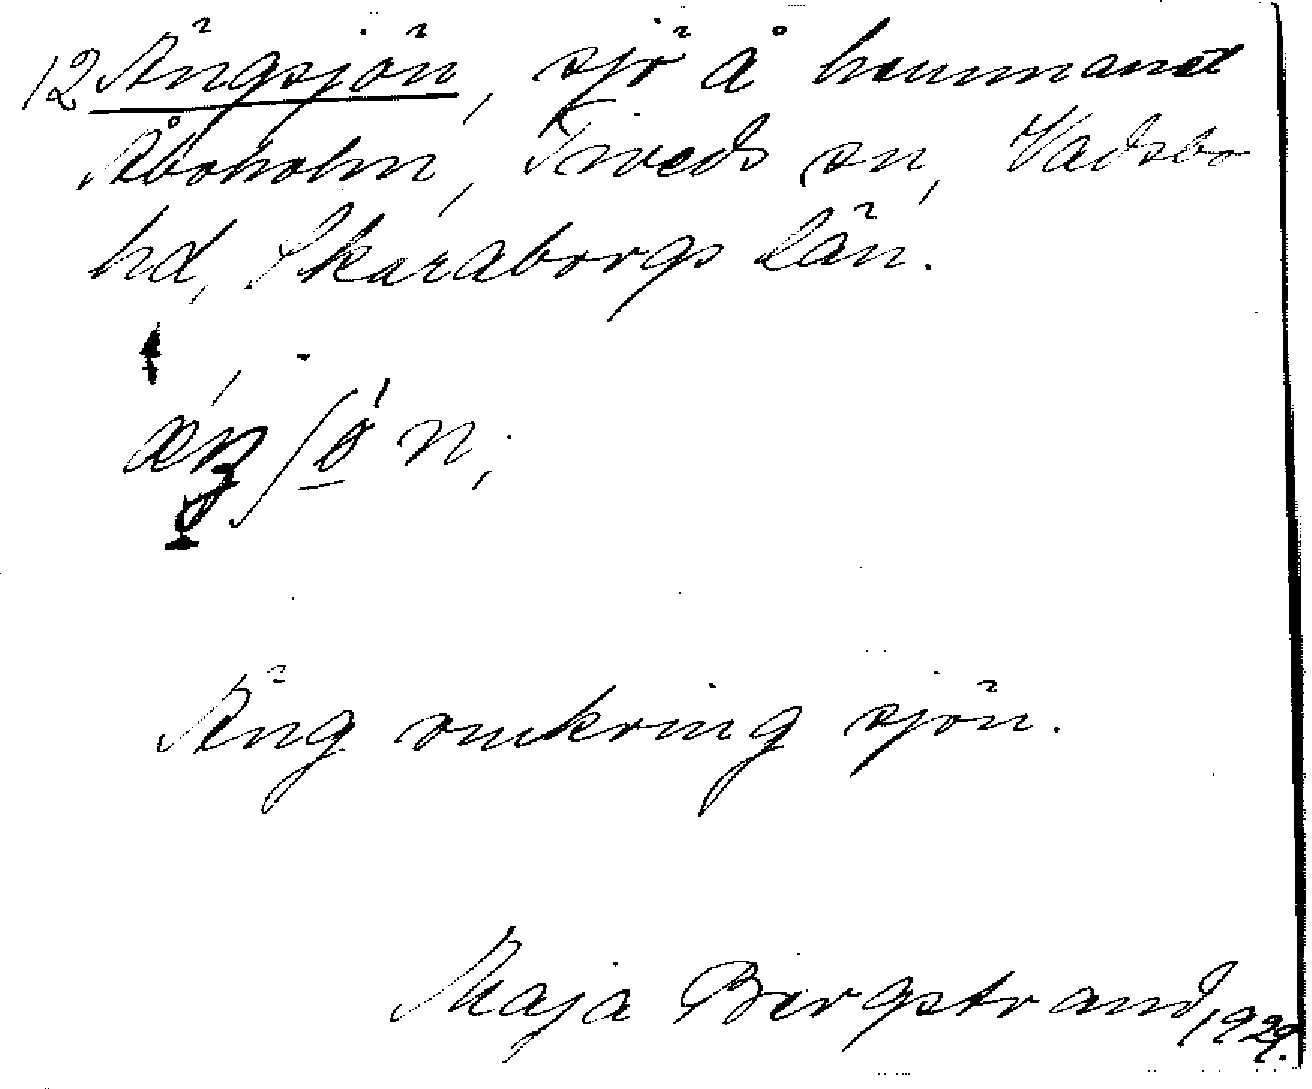 12 Ängsjön, sjö å hemmanet
Åboholm, Tiveds sn, Vadsbo
hd, Skaraborgs län.
Äng omkring sjön.
Maja Bergstrand 1929.